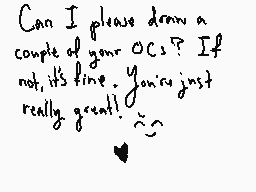 Can I please draw a
couple of your OCs? If
not, it's fine. You're just
really great!